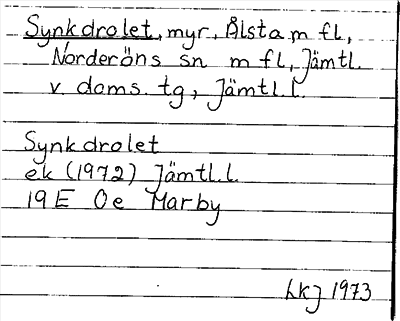 Synkdrolet, myr, Ålsta m fl,
Norderöns sn m fl, Jämtl.
v. doms. tg, Jämtl. l.
Synkdrolet
ek (1972) Jämtl. l.
19E Oe Marby
LKJ 1973